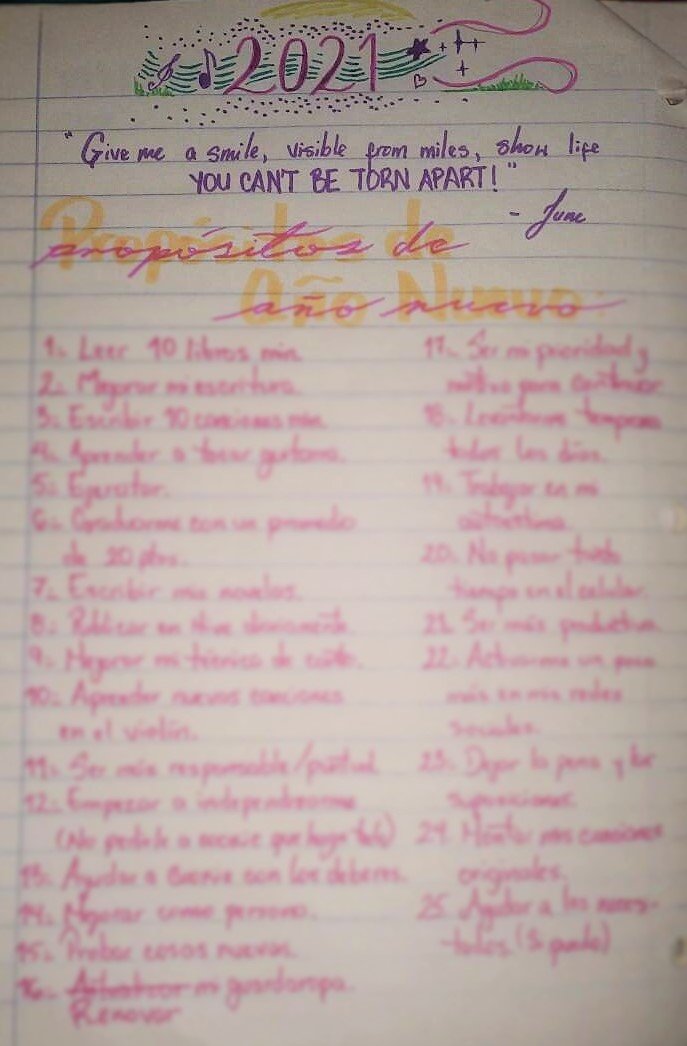 2021
"Give me a smile, visible from miles, show life
YOU CAN'T BE TORN APART!"
- June
Propósitos de
propósitos de
Año Nuevo
año nuevo
1. Leer 10 libros min.
2. Mejorar mi escritura.
3. Escribir 10 canciones min.
4. Aprender a tocar guitarra.
5. Ejercitar.
6. Graduarme con un promedio
de 20 ptos.
7. Escribir mis novelas.
8. Publicar en Hive
9. Mejorar mi técnica de canto.
10. Aprender nuevas canciones
en el violín.
11. Ser más responsable/puntual
12. Empezar a independizarme
(No pedirle a nadie que haga todo)
13. Ayudar a con los deberes.
14. Mejorar como persona.
15. Probar cosas nuevas.
16. mi guardaropa.
Renovar
17. Ser mi prioridad y
motivo para continuar
18. Levantarme temprano
todos los días.
19. Trabajar en mi
autoestima.
20. No pasar tanto
tiempo en el celular.
21. Ser más productiva.
22. Activarme un poco
más en mis redes
sociales.
23. Dejar la pena y las
suposiciones.
24. Montar mis canciones
originales.
25. Ayudar a los necesi-
tados (Si puedo)